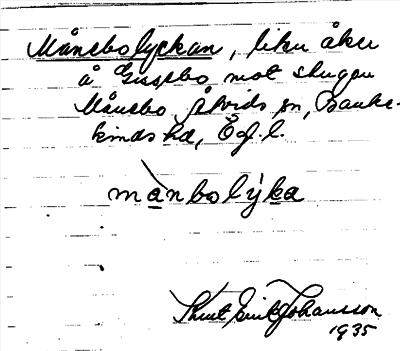 Månsbolyckan, liten åker
å Gissebo mot skogen
Månsbo Åtvids sn, Banke-
kinds hd, Ög. l.
manbolyka
Knut Erik Johansson
1935